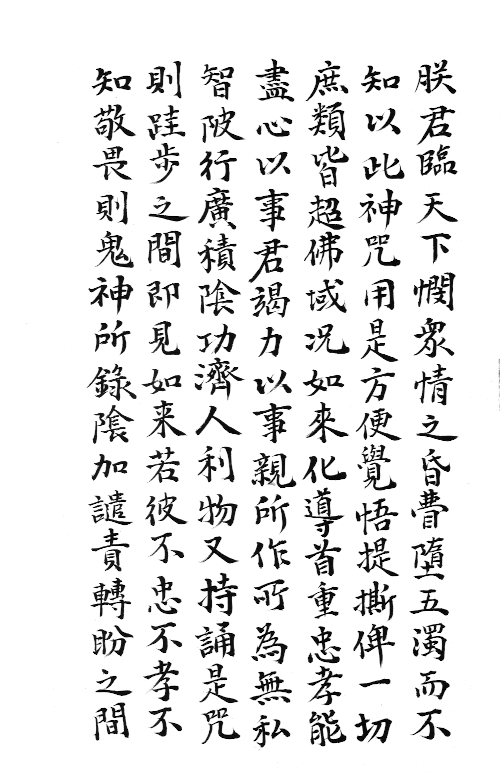 朕君臨天下憫衆情之昏瞢墮五濁而不
知以此神咒用是方便覺悟提撕俾一切
庶類皆超佛域况如來化導首重忠孝能
盡心以事君竭力以事親所作所為無私
智陂行廣積陰功濟人利物又持誦是咒
則跬步之間即見如来若彼不忠不孝不
知敬畏則鬼神所錄陰加譴責轉盼之間